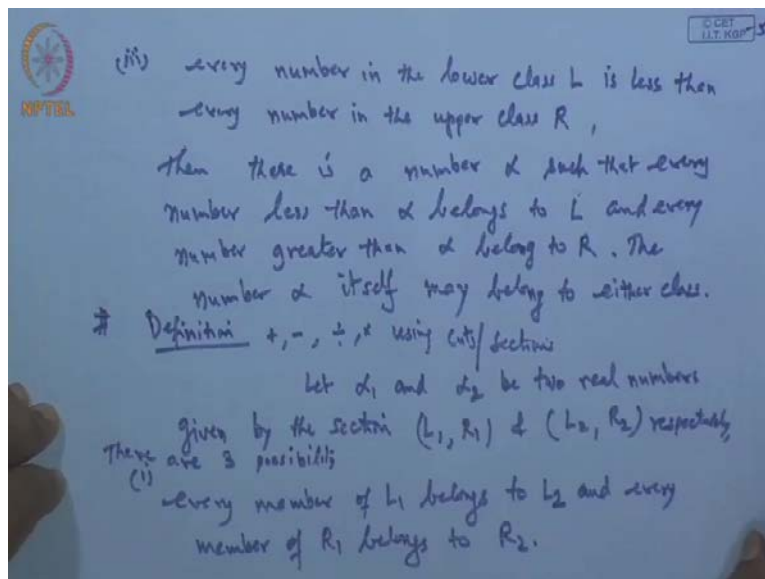 © CET
I.I.T. KGP
NPTEL
(iii) every number in the lower class L is less than
every number in the upper class R,
then there is a number α such that every
number less than α belongs to L and every
number greater than α belong to R. The
number α itself may belong to either class.
# Definition +, -, ÷, * using cuts/sections
Let α₁ and α₂ be two real numbers
given by the section (L₁, R₁) & (L₂, R₂) respectively
There are 3 possibility
(i)
every member of L₁ belongs to L₂ and every
member of R₁ belongs to R₂.